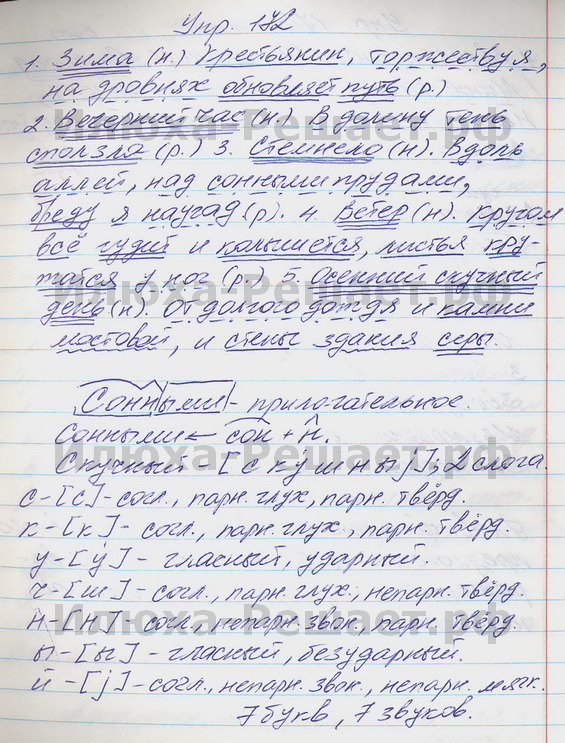 Упр. 172
1. Зима (н.) Крестьянин, торжествуя,
на дровнях обновляет путь (р.)
2. Вечерний час (н.) В долину тень
сползла (р.) 3. Стемнело (н). Вдоль
аллей, над сонными прудами,
бреду я наугад (р). 4. Ветер (н). Кругом
всё гудит и колышется, листья кру-
тятся у ног (р.) 5. Осенний скучный
день (н). От долгого дождя и камни
мостовой, и стены здания серы.
Сонными - прилогательное.
Сонными ← сон + н.
Скучный - [скушныj], 2 слога.
с - [с] - согл., парн. глух, парн. твёрд.
к - [к] - согл., парн. глух., парн. твёрд.
у - [у́] - гласный, ударный.
ч - [ш] - согл., парн. глух., непарн. твёрд.
н - [н] - согл., непарн. звон., парн. твёрд.
ы - [ы] - гласный, безударный.
й - [j] - согл., непарн. звон., непарн. мягк.
7 букв, 7 звуков.
Илюха-Решает.рф
Илюха-Решает.рф
Илюха-Решает.рф
Илюха-Решает.рф